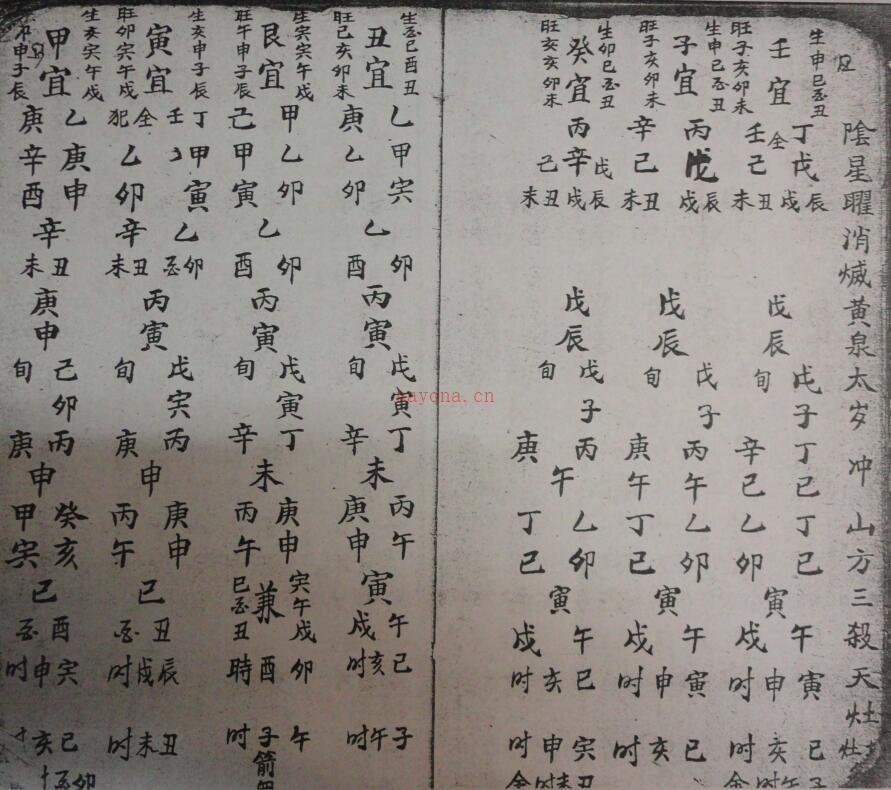 陰星曜消滅黃泉太岁冲山方三殺天灶
生申巳酉丑
旺子亥卯未
壬宜
丁戊壬己全
辰戌丑未
戊辰
戊子旬
丁巳辛巳
丁巳乙卯
寅午戌
寅申时
巳亥时
子午时
生申巳酉丑
旺子亥卯未
子宜
丙戊辛己
辰戌丑未
戊辰
戊子旬
丙午庚午
乙卯丁巳
寅午戌
寅申时
巳亥时
生卯巳酉丑
旺亥亥卯未
癸宜
丙辛
戊辰戌己丑未
戊辰
戊子旬
丙庚午
乙卯丁巳
寅午戌
巳亥时
寅申时
丑未时
生酉巳酉丑
旺巳亥卯未
丑宜
乙庚
甲寅乙卯
乙卯酉
丙寅
戊寅旬
丁辛未
丙午庚申
寅午戌
巳亥时
子午时
生寅寅午戌
旺午申子辰
艮宜
甲己
乙卯甲寅
乙卯酉
丙寅
戊寅旬
丁辛未
庚申丙午
寅午戌兼巳酉丑
卯酉時
午子时
箭
生亥申子辰
旺卯寅午戌
寅宜
丁壬全犯
甲寅乙卯
乙卯酉辛丑未
丙寅
戊寅旬
丙庚申
庚申丙午
巳丑酉
辰戌时
丑未时
生亥寅午戌
申子辰
甲宜
乙庚
庚申辛酉
辛丑未
庚申
己卯旬
丙庚申
癸亥甲寅
巳酉
寅申时
巳亥
卯酉